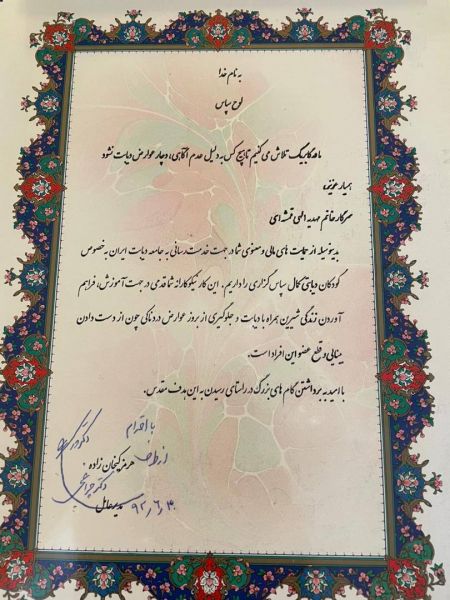 به نام خدا
لوح سپاس
ما در گابریک تلاش می کنیم تا هیچ کس به دلیل عدم آگاهی، دچار عوارض دیابت نشود
همیار عزیز
سرکار خانم مهدیه الهی قمشه ای
بدینوسیله از حمایت های مالی و معنوی شما در جهت خدمت رسانی به جامعه دیابت ایران به خصوص
کودکان دیابتی کمال سپاس گزاری را داریم. این کار نیکوکارانه شما قدمی در جهت آموزش، فراهم
آوردن زندگی شیرین همراه با دیابت و جلوگیری از بروز عوارض دردناکی چون از دست دادن
بینایی و قطع عضو این افراد است.
با امید به برداشتن گام های بزرگ در راستای رسیدن به این هدف مقدس.
با احترام
از طرف
هرمز گیخان زاده
مدیر عامل
۹۲/۶/۳۰